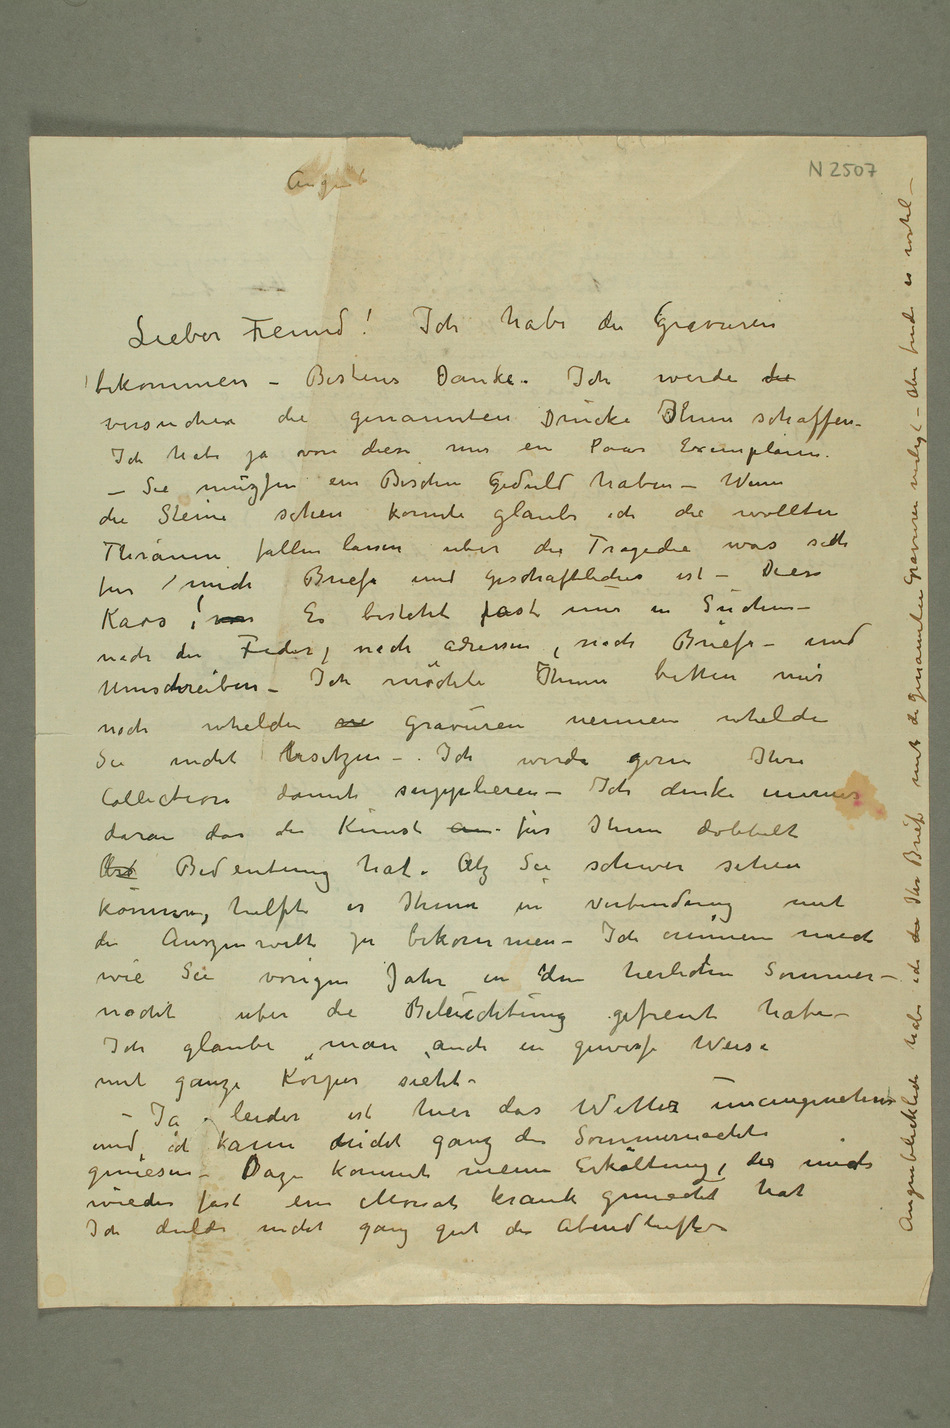 August
N 2507
Lieber Freund! Ich habe die Gravuren
bekommen – Bestens Danke. Ich werde die
versuchen die genannten Drucke Ihnen schaffen –
Ich habe ja von diese nur en Paar Exemplaren.
– Sie muszen ein Bischen Geduld haben – Wenn
die Steine sehen konnte glaube ich die wollten
Thränen fallen lassen uber die Tragedie was sich
fur mich Briefe und Geschäftliches ist – Diese
Kaos! Es besteht fast nur in Suchen –
nach der Feder, nach adressen, nach Briefe – und
Umschreiben – Ich möchte Ihnen bitten mir
noch whelche Gravuren nennen whelche
Sie nicht besitzen – Ich werde gern Ihre
Collection damit supplieren – Ich denke immer
daran das die Kunst an für Ihnen dobbelt
Bedeutung hat. Alz Sie schwer sehen
können, helfte es Ihnen in Verbindung mit
die Auszenwelt zu bekommen – Ich erinnere mich
wie Sie vorigen Jahr in den herlichen Sommer –
nacht uber die Beleuchtung gefreut habe –
Ich glaube man auch in gewisse Weise
mit ganze Körper sieht –
– Ja leider ist hier das Wetter unangenehm
und ich kann nicht ganz die Sommernachte
geniesen – Dazu kommt meine Erkältung, die mich
wieder fast ein Monat krank gemacht hat
Ich dulde nicht ganz gut die Abendluft –
Augenblicklich habe ich die Ihr Brief mit die genannten Gravuren verlegt – aber finde es wohl –